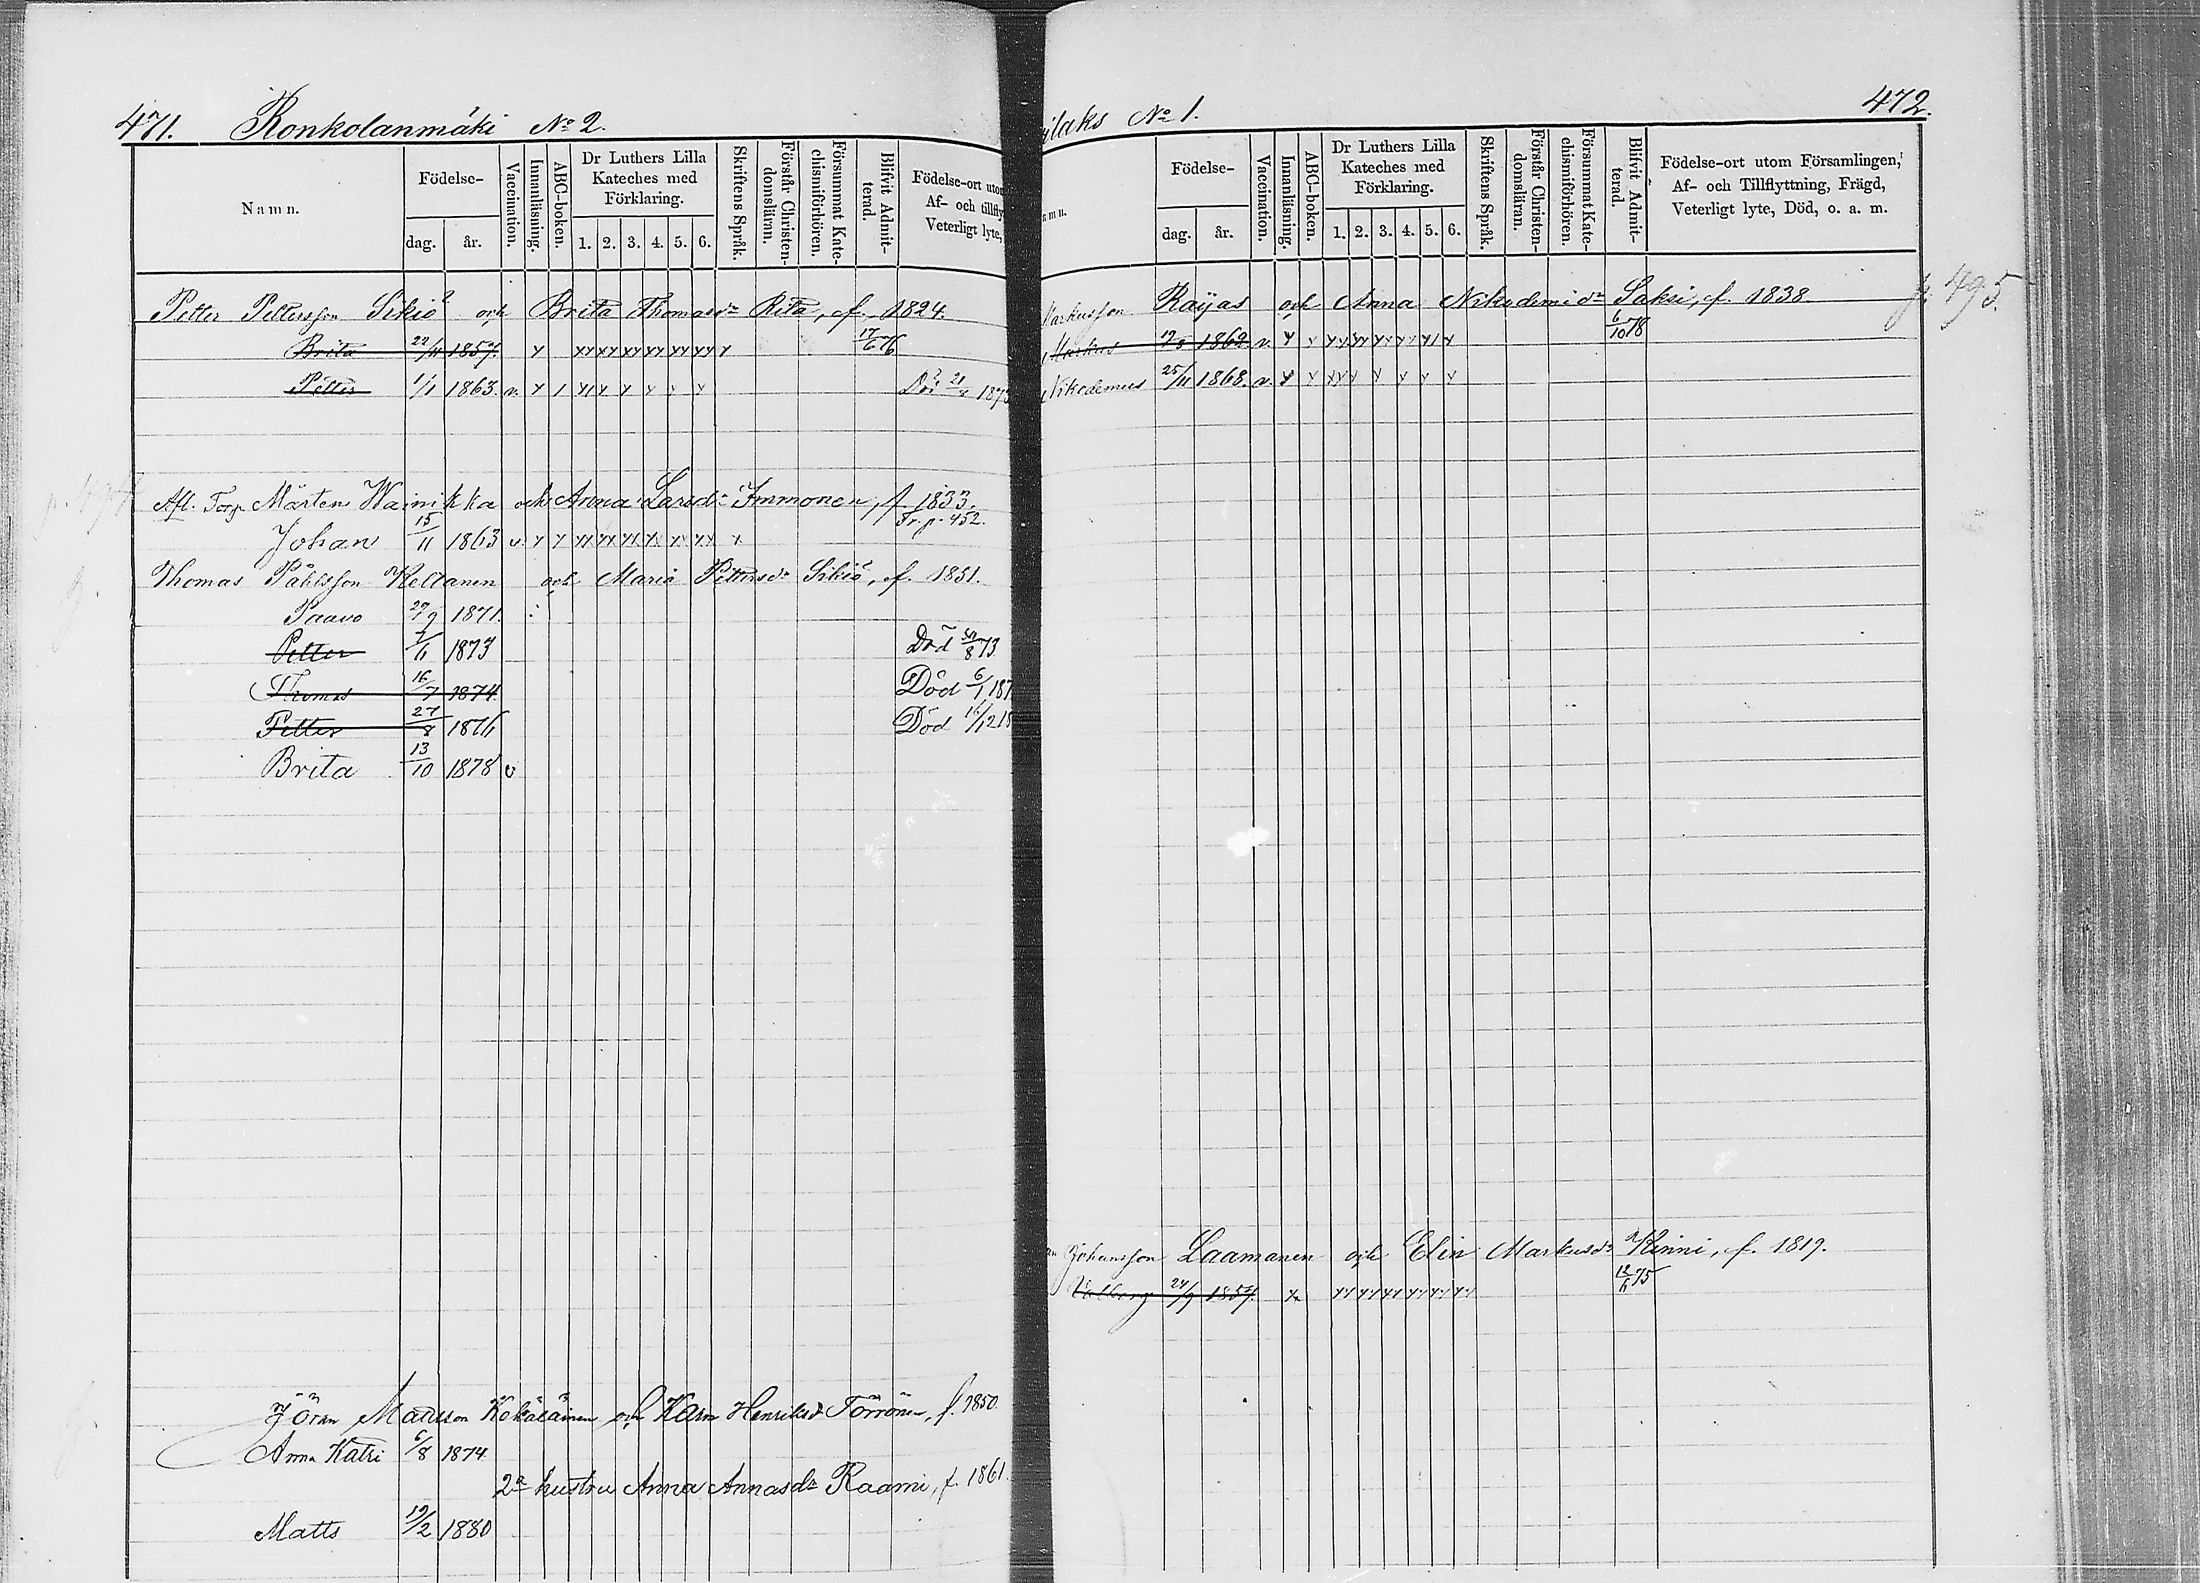 471. Konkolanmäki No 2.
Namn.
Födelse-
dag. år.
Vaccination.
Innanläsning.
ABC-boken.
Dr Luthers Lilla
Kateches med
Förklaring.
1. 2. 3. 4. 5. 6.
Skriftens Språk.
Förstår Christen-
domsläran.
Försummat Kate-
chismiförhören.
Blifvit Admit-
terad.
Födelse-ort uto
Af- och tillfly
Veterligt lyte,
Petter Pettersson Sikiö och Brita Thomasdr Rita, f. 1824.
Brita 22/11 1857. 17/6 76
Petter 1/1 1863. v. Död 21
Afl. Torp. Mårten Wainikka och Anna Larsdr Immonen, f. 1833.
Tr. p. 452.
Johan 15/11 1863 v.
Thomas Påhlsson Keltanen och Maria Pettersdr Sikiö, f. 1851.
Paavo 27/9 1871.
Petter 1873 Död 8 73
Thomas 16/7 1874. Död 6/1 187
Petter 27/8 1876 Död 16/12 18
Brita 13/10 1878 v
Jöran Matsson Kokäläinen och Karin Henriksd Törrönen, f. 1850.
Anna Katri 6/8 1874
2a hustru Anna Annasdr Raami, f. 1861.
Matts 19/2 1880
ilaks No 1. 472.
mn.
Födelse-
dag. år.
Vaccination.
Innanläsning.
ABC-boken.
Dr Luthers Lilla
Kateches med
Förklaring.
1. 2. 3. 4. 5. 6.
Skriftens Språk.
Förstår Christen-
domsläran.
Försummat Kate-
chismiförhören.
Blifvit Admit-
terad.
Födelse-ort utom Församlingen,
Af- och Tillflyttning, Frägd,
Veterligt lyte, Död, o. a. m.
arkusson Raijas och Anna Nikodemidr Saksi, f. 1838. p. 495.
Markus 1862. v. 6/10 78
Nikodemus 25/11 1868. v.
Johansson Laamanen och Elin Markusdr Kinni, f. 1819.
Valborg 24/9 1857. 12/6 75